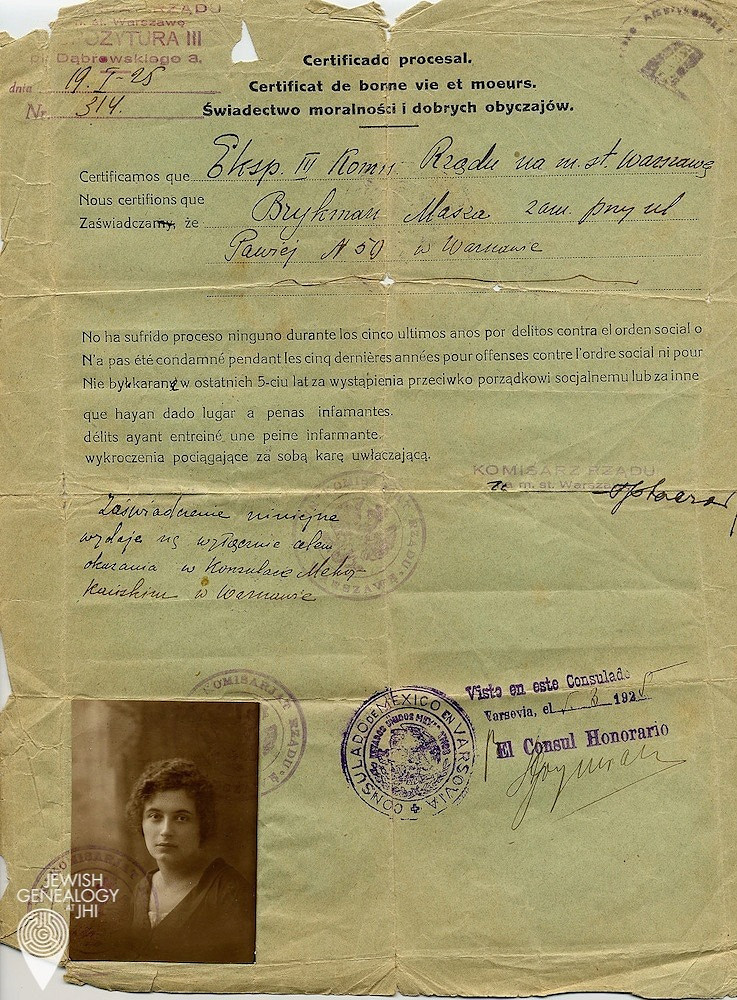 RZĄDU
m. st. Warszawę
OZYTURA III
pl. Dąbrowskiego 3.
dnia 19. I-25
Nr. 314.
Certificado procesal.
Certificat de bonne vie et moeurs.
Świadectwo moralności i dobrych obyczajów.
Certificamos que Eksp. III Kom. Rządu na m. st. Warszawę
Nous certifions que
Zaświadczamy, że Brykman Masza zam. przy ul
Pawiej N 50 w Warszawie
No ha sufrido proceso ninguno durante los cinco ultimos anos por delitos contra el orden social o
N'a pas été condamné pendant les cinq dernières années pour offenses contre l'ordre social ni pour
Nie był karany w ostatnich 5-ciu lat za wystąpienia przeciwko porządkowi socjalnemu lub za inne
que hayan dado lugar a penas infamantes.
délits ayant entreiné une peine infarmante.
wykroczenia pociągające za sobą karę uwłaczającą.
KOMISARZ RZĄDU
na m. st. Warszawę
Zaświadczenie niniejsze
wydaje się wyłącznie celem
okazania w Konsulacie Meksy-
kańskim w Warszawie
KOMISARJAT RZĄDU
Visto en este Consulado
Varsovia, el 1925
El Consul Honorario
CONSULADO DE MEXICO EN VARSOVIA
ESTADOS UNIDOS MEXICANOS
KOMISARJAT
JEWISH
GENEALOGY
AT JHI